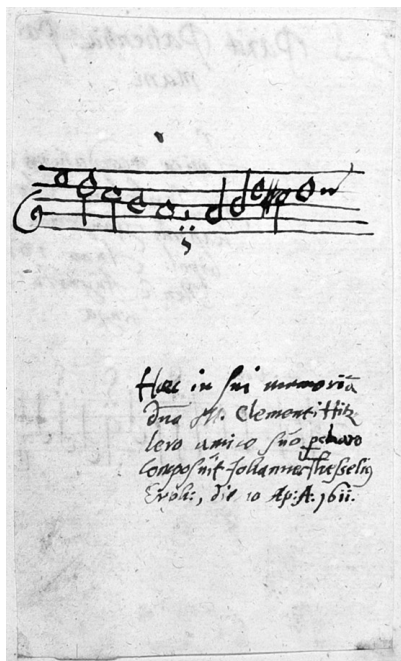 Hæc in sui memoriā
dn̄o M. Clementi Hitz
lero amico suo perchero
Composuit Johannes Thesselius
die 10 Ap: A. 1611.